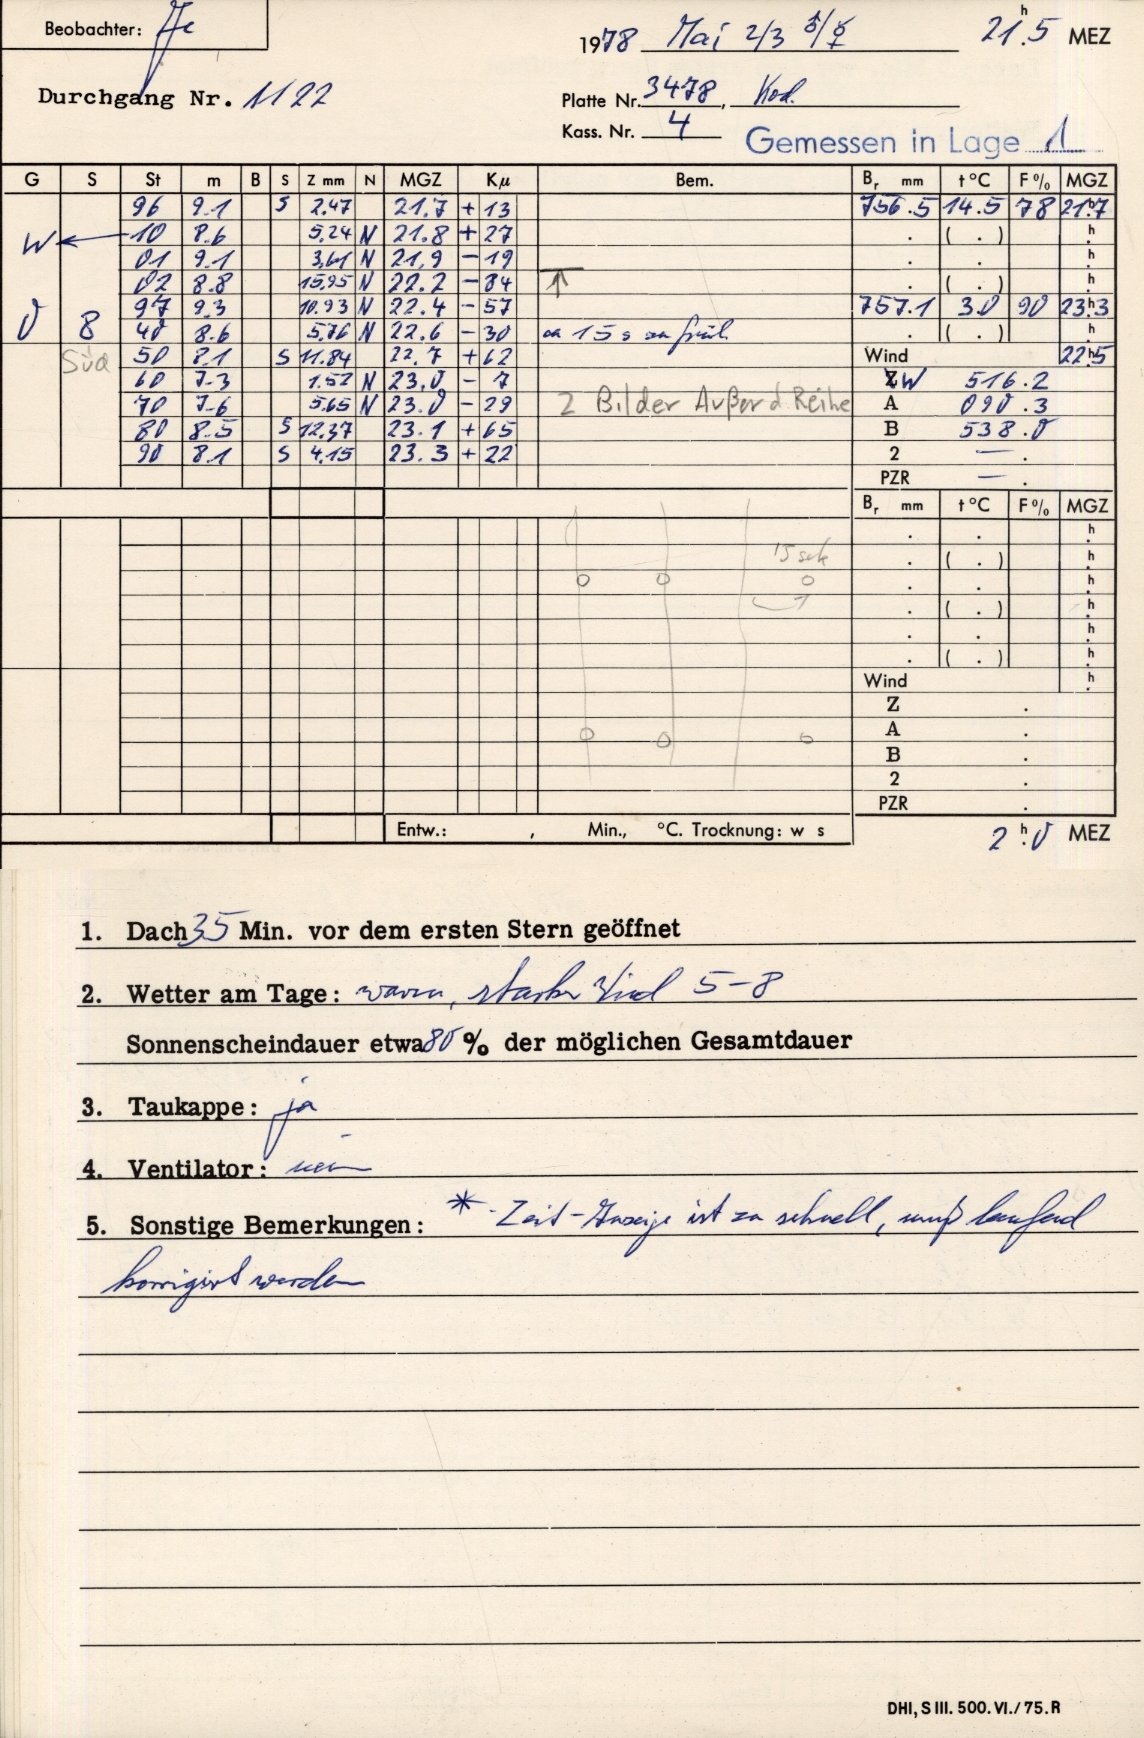 Beobachter: Je
1978 Mai 2/3 ♂/☿ 21.5 h MEZ
Durchgang Nr. 1122
Platte Nr. 3478, Kod.
Kass. Nr. 4
Gemessen in Lage 1
G S St m B S Z mm N MGZ Kμ Bem. Br mm t °C F % MGZ
96 9.1 S 2.47 21.7 + 13 756.5 14.5 78 21h7
W 10 8.6 5.24 N 21.8 + 27 . ( . ) h
01 9.1 3.61 N 21.9 - 19 . . h
02 8.8 15.95 N 22.2 - 84 ↑ . ( . ) h
97 9.3 10.93 N 22.4 - 57 757.1 3.0 90 23h3
0 8 40 8.6 5.76 N 22.6 - 30 ca 15 s zu früh . ( . ) h
Süd 50 8.1 S 11.84 22.7 + 62 Wind 22h5
60 7.3 1.52 N 23.0 - 7 ZW 516.2
70 7.6 5.65 N 23.0 - 29 2 Bilder Außer d. Reihe A 090.3
80 8.5 S 12.37 23.1 + 65 B 538.0
90 8.1 S 4.15 23.3 + 22 2 — .
PZR — .
Br mm t °C F % MGZ
. . h
15 sek . ( . ) h
. . h
. ( . ) h
. . h
. ( . ) h
Wind h
Z .
A .
B .
2 .
PZR .
Entw.: , Min., °C. Trocknung: w s
2 h.0 MEZ
1. Dach 35 Min. vor dem ersten Stern geöffnet
2. Wetter am Tage: warm, starker Wind 5-8
Sonnenscheindauer etwa 80 % der möglichen Gesamtdauer
3. Taukappe: ja
4. Ventilator: nein
5. Sonstige Bemerkungen: * Zeit-Anzeige ist zu schnell, muß laufend
korrigiert werden
DHI, S III. 500. VI./75. R